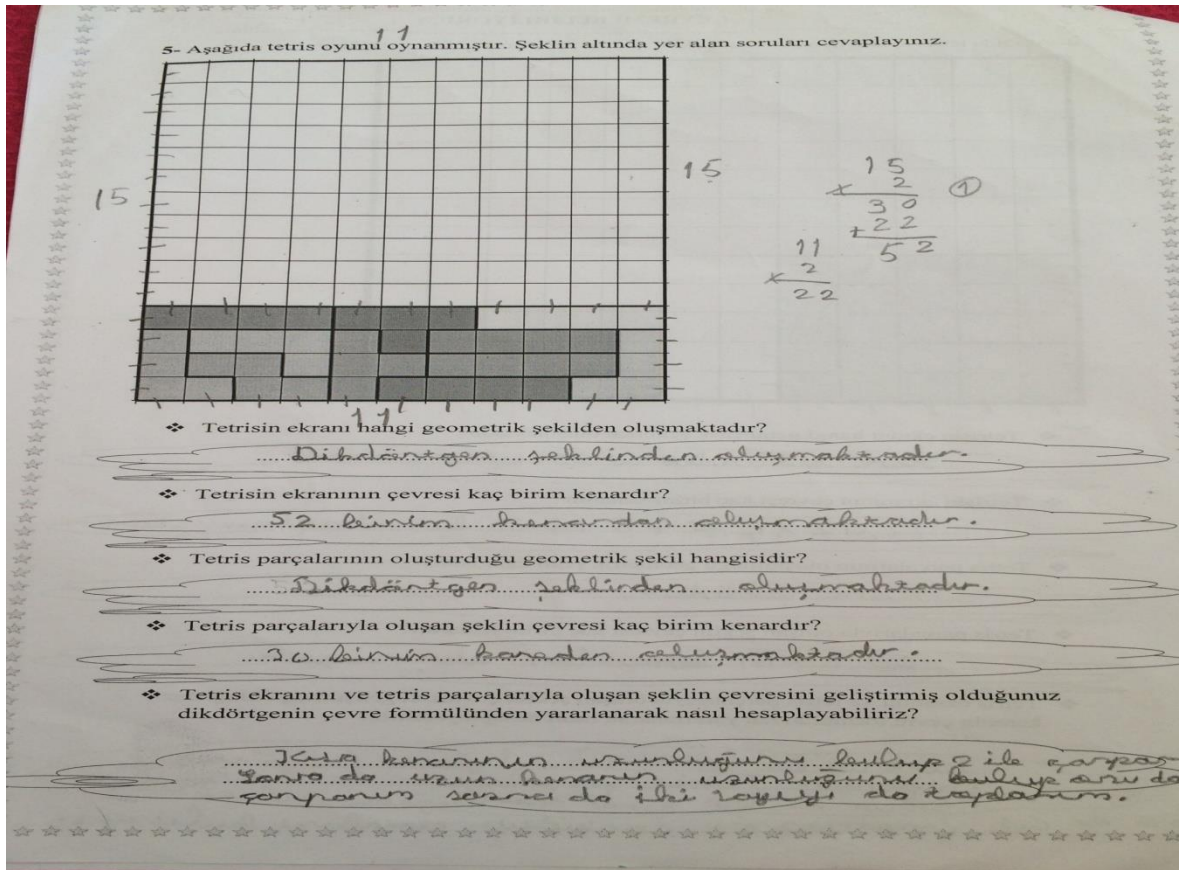 11
5- Aşağıda tetris oyunu oynanmıştır. Şeklin altında yer alan soruları cevaplayınız.
15
15
15
x 2
30
+22
52
1
11
x 2
22
11
❖ Tetrisin ekranı hangi geometrik şekilden oluşmaktadır?
Dikdörtgen şeklinden oluşmaktadır.
❖ Tetrisin ekranının çevresi kaç birim kenardır?
52 birim kenardan oluşmaktadır.
❖ Tetris parçalarının oluşturduğu geometrik şekil hangisidir?
Dikdörtgen şeklinden oluşmaktadır.
❖ Tetris parçalarıyla oluşan şeklin çevresi kaç birim kenardır?
30 birim kareden oluşmaktadır.
❖ Tetris ekranını ve tetris parçalarıyla oluşan şeklin çevresini geliştirmiş olduğunuz
dikdörtgenin çevre formülünden yararlanarak nasıl hesaplayabiliriz?
Kısa kenarının uzunluğunu bulup 2 ile çarpar
Sonra da uzun kenarın uzunluğunu bulup onu da
çarparım sonra da iki sayıyı da toplarım.